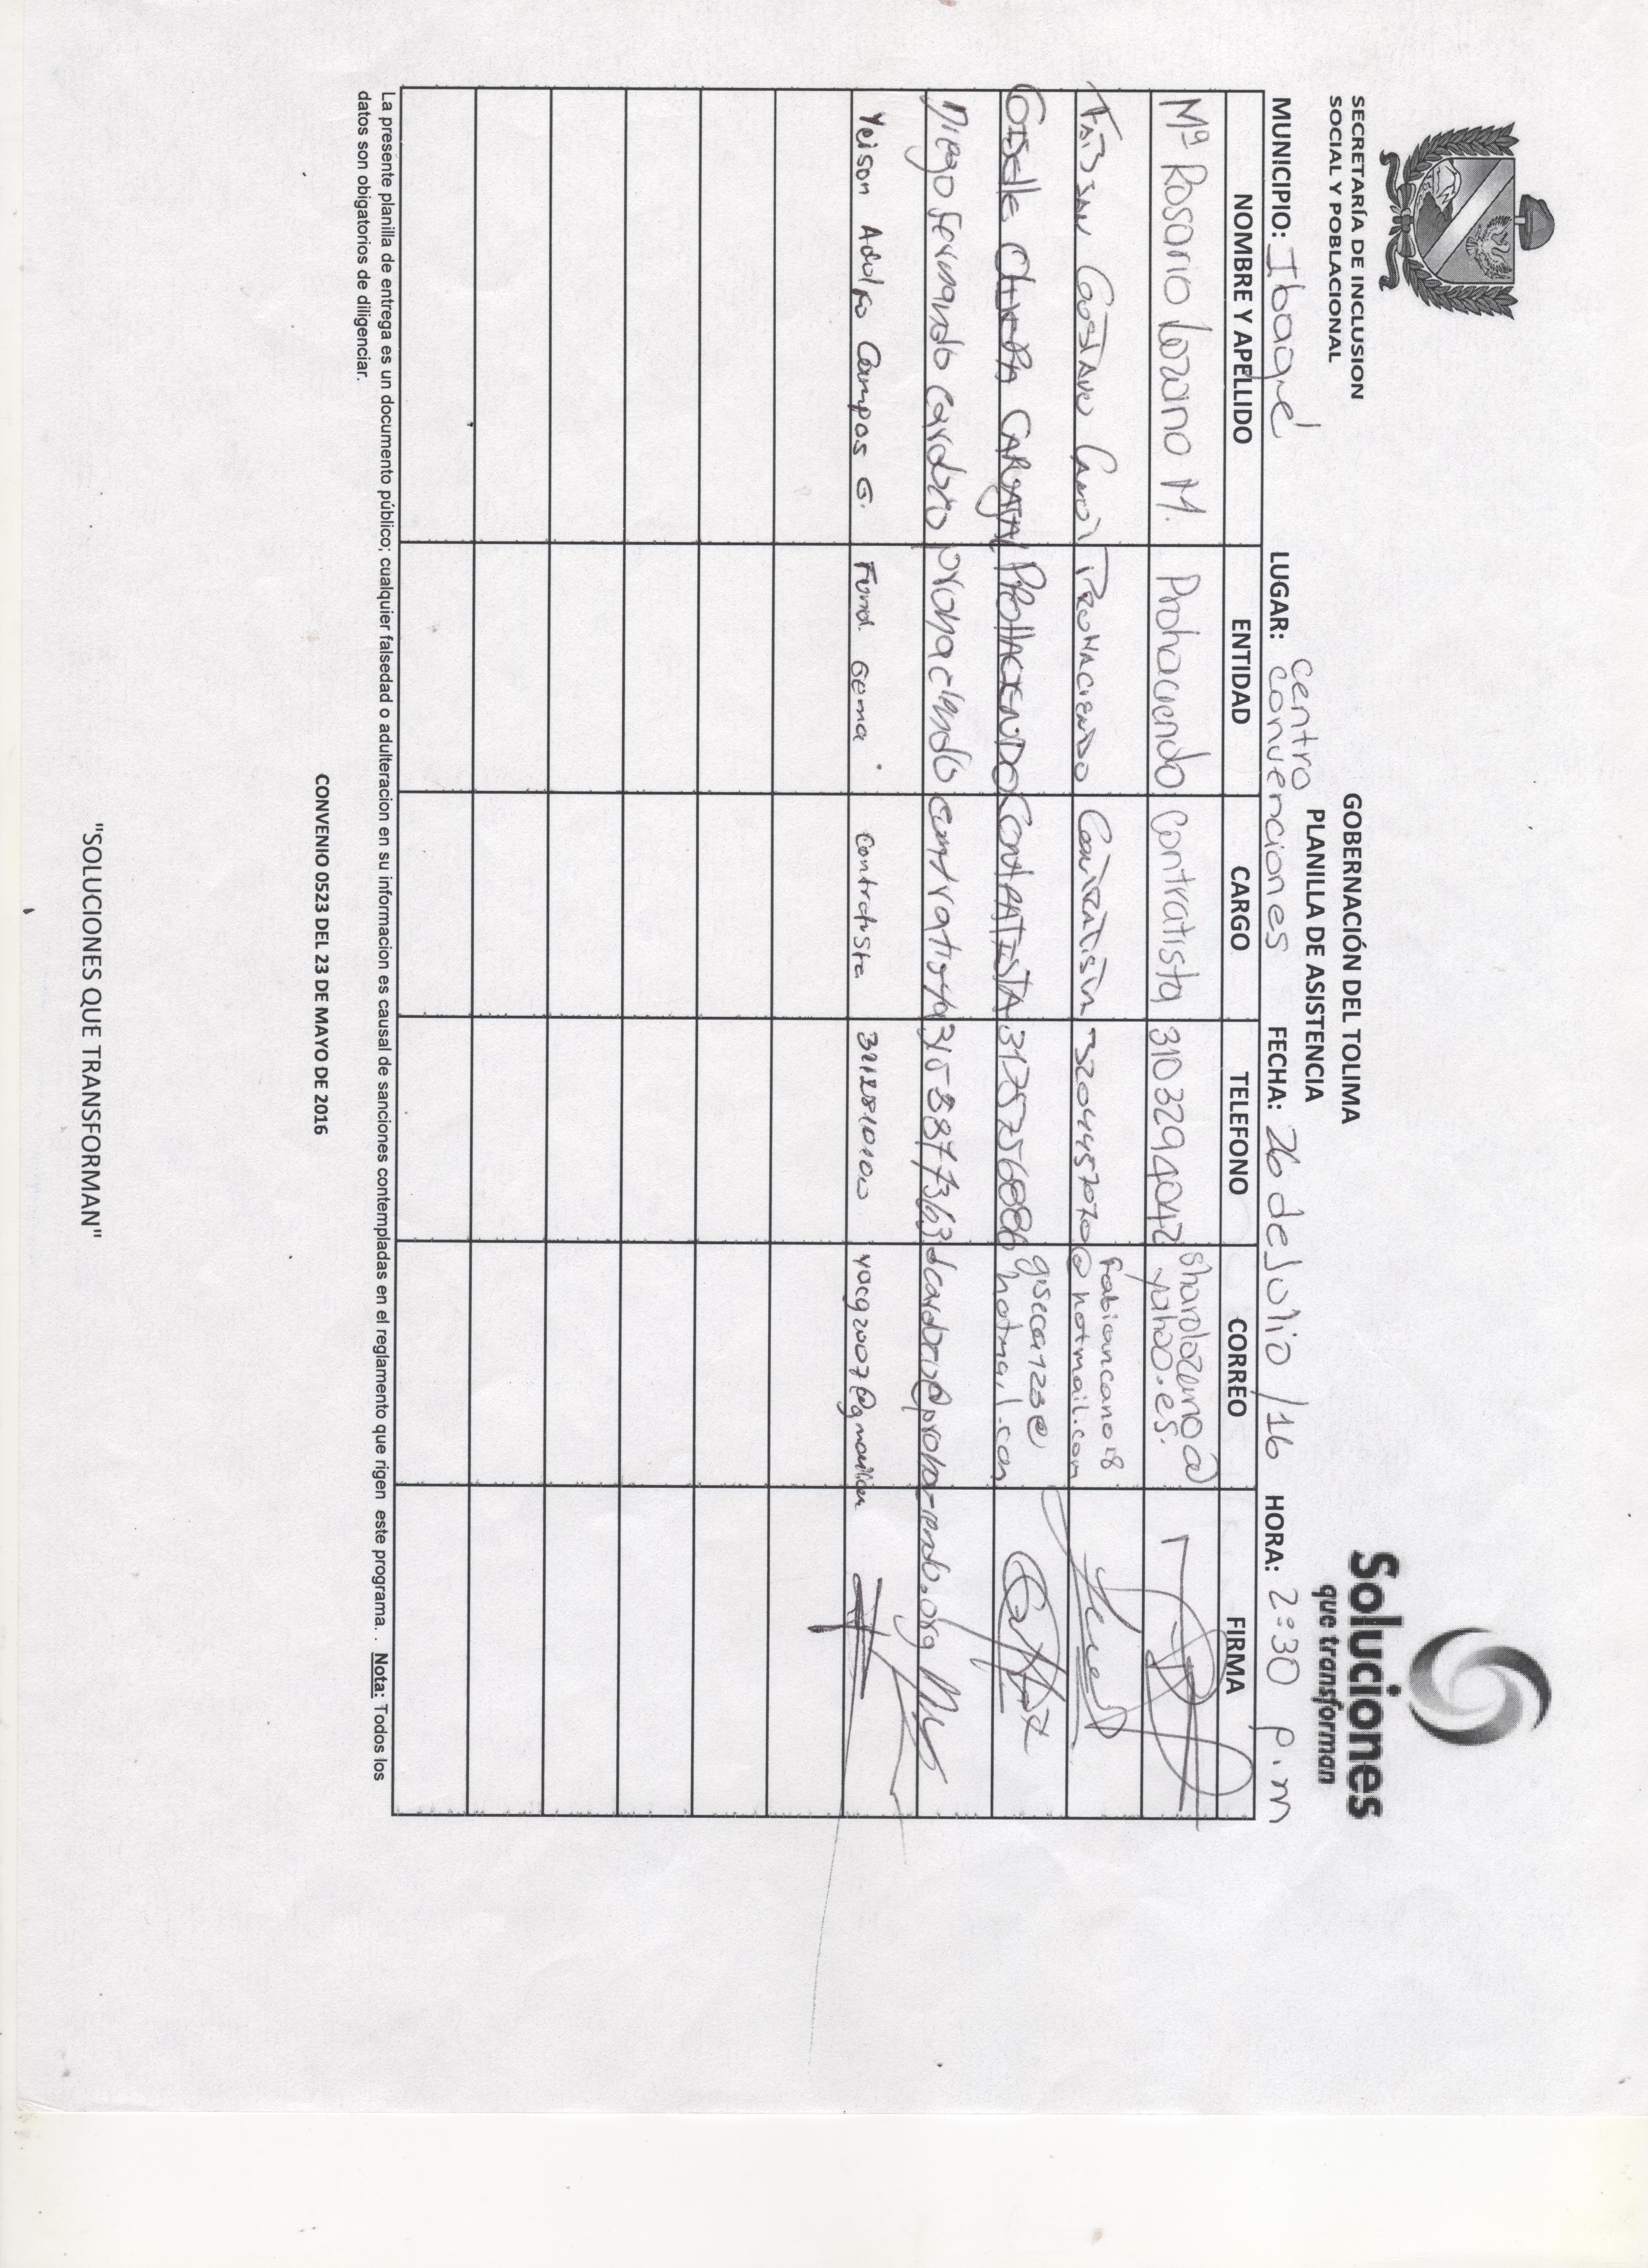 SECRETARÍA DE INCLUSION
SOCIAL Y POBLACIONAL
GOBERNACIÓN DEL TOLIMA
PLANILLA DE ASISTENCIA
Soluciones
que transforman
MUNICIPIO: Ibagué LUGAR: Centro convenciones FECHA: 26 de Julio /16 HORA: 2:30 p.m
NOMBRE Y APELLIDO ENTIDAD CARGO TELEFONO CORREO FIRMA
Mª Rosario Lozano M. Prohaciendo Contratista 3103294042 sharolozano@yahoo.es.
Fabian Gustavo Cano Prohaciendo Contratista 3204457070 fabiancano18@hotmail.com
Giselle CARVAJAL PROHACIENDO CONTRATISTA 3175756886 giseca123@hotmail.com
Diego Fernando Cardozo prohaciendo contratista 3158877363 dcardozo@prohaciendo.org
Yeison Adolfo Campos G. Fund. Gema Contratista yacg2007@gmail.com
La presente planilla de entrega es un documento público; cualquier falsedad o adulteracion en su informacion es causal de sanciones contempladas en el reglamento que rigen este programa. . Nota: Todos los
datos son obigatorios de diligenciar.
CONVENIO 0523 DEL 23 DE MAYO DE 2016
"SOLUCIONES QUE TRANSFORMAN"